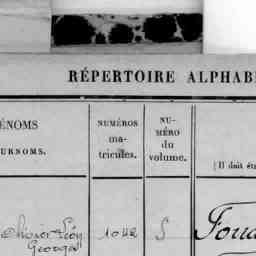 RÉPERTOIRE ALPHAB
ÉNOMS
URNOMS.
NUMÉROS
ma-
tricules.
NU-
MÉRO
du
volume.
(Il doit êt
Olivier Léon
Georges
1042
5